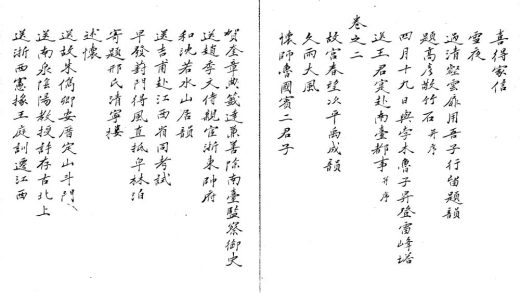 喜得家信
雪夜
過清谿雲扉用吾子行留題韻
題高彦敬竹石并序
四月十九日與字木魯子昇登雷峰塔
送王君定赴南臺都事并序
卷之二
故宮春望次平禹成韻
久雨大風
懷師魯國賓二君子
賀奎章典籤達兼善除南臺監察御史
送趙季文侍親宦浙東帥府
和沈若水山居韻
送吉甫赴江西省同考試
早發葑門得風直抵皁林泊
寄題邢氏清寧樓
述懷
送故朱僑卿安厝定山斗門
送南泉陰陽教授許存吉北上
送浙西憲掾王庭訓遷江西